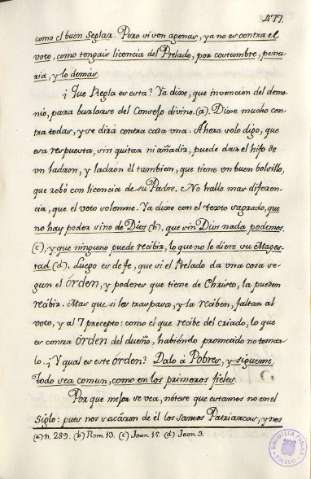 como el buen Seglar. Pero viven agenar, ya no es contra el
voto, como tengais licencia del Prelado, por costumbre, peni
ria, y lo demas.
¿Que Regla es esta? Ya dixe, que invencion del demo
nio, para burlarse del Consejo divino. (a). Dixe mucho con
tra todas, y se dira contra cada una. Ahora solo digo, que
esa respuesta, sin quitar ni añadir, puede dar el hijo de
un ladron, y ladron èl tambien, que tiene un buen bolsillo,
que robó con licencia de su Padre. No hallo mas diferen
cia, que el voto solemne. Ya dixe con el texto sagrado, que
no hay poder sino de Dios (b), que sin Dios nada podemos
(c), y que ninguno puede recibir, lo que no le diere su Mages
tad (d). Luego es de fe, que si el Prelado da una cosa se
gun el orden, y poderes que tiene de Christo, la pueden
recibir. Mas que si les traspasa, y la reciben, faltan al
voto, y al 7 precepto: como el que recibe del criado, lo que
es contra orden del dueño, habiendo prometido no tomar
lo. ¿Y qual es este orden? Dalo à Pobres, y sigueme,
Todo sea comun, como en los primeros fieles.
Por que mejor se vea, nótese que estamos no en el
siglo: pues nos sacáron de èl los santos Patriarcas, y nos
(a) n. 289. (b) Rom 13. (c) Joan 15. (d) Joan 3.